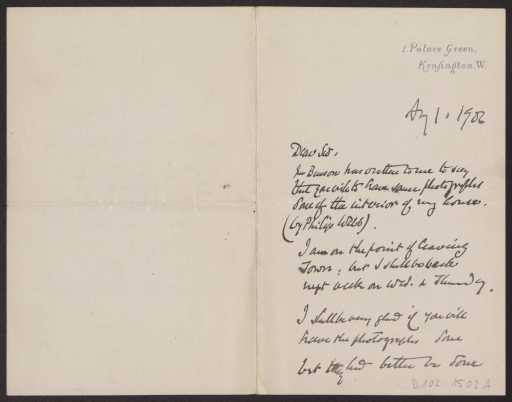 1. Palace Green,
Kensington. W.
Aug 1. 1902
Dear Sir,
Mr Benson has written to me to say
that you wish to have some photographs
done of the interior of my house.
(by Philip Webb).
I am on the point of leaving
Town; but I shall be back
next week on Wed. & Thursday.
I shall be very glad if you will
have the photographs done
but they had better be done